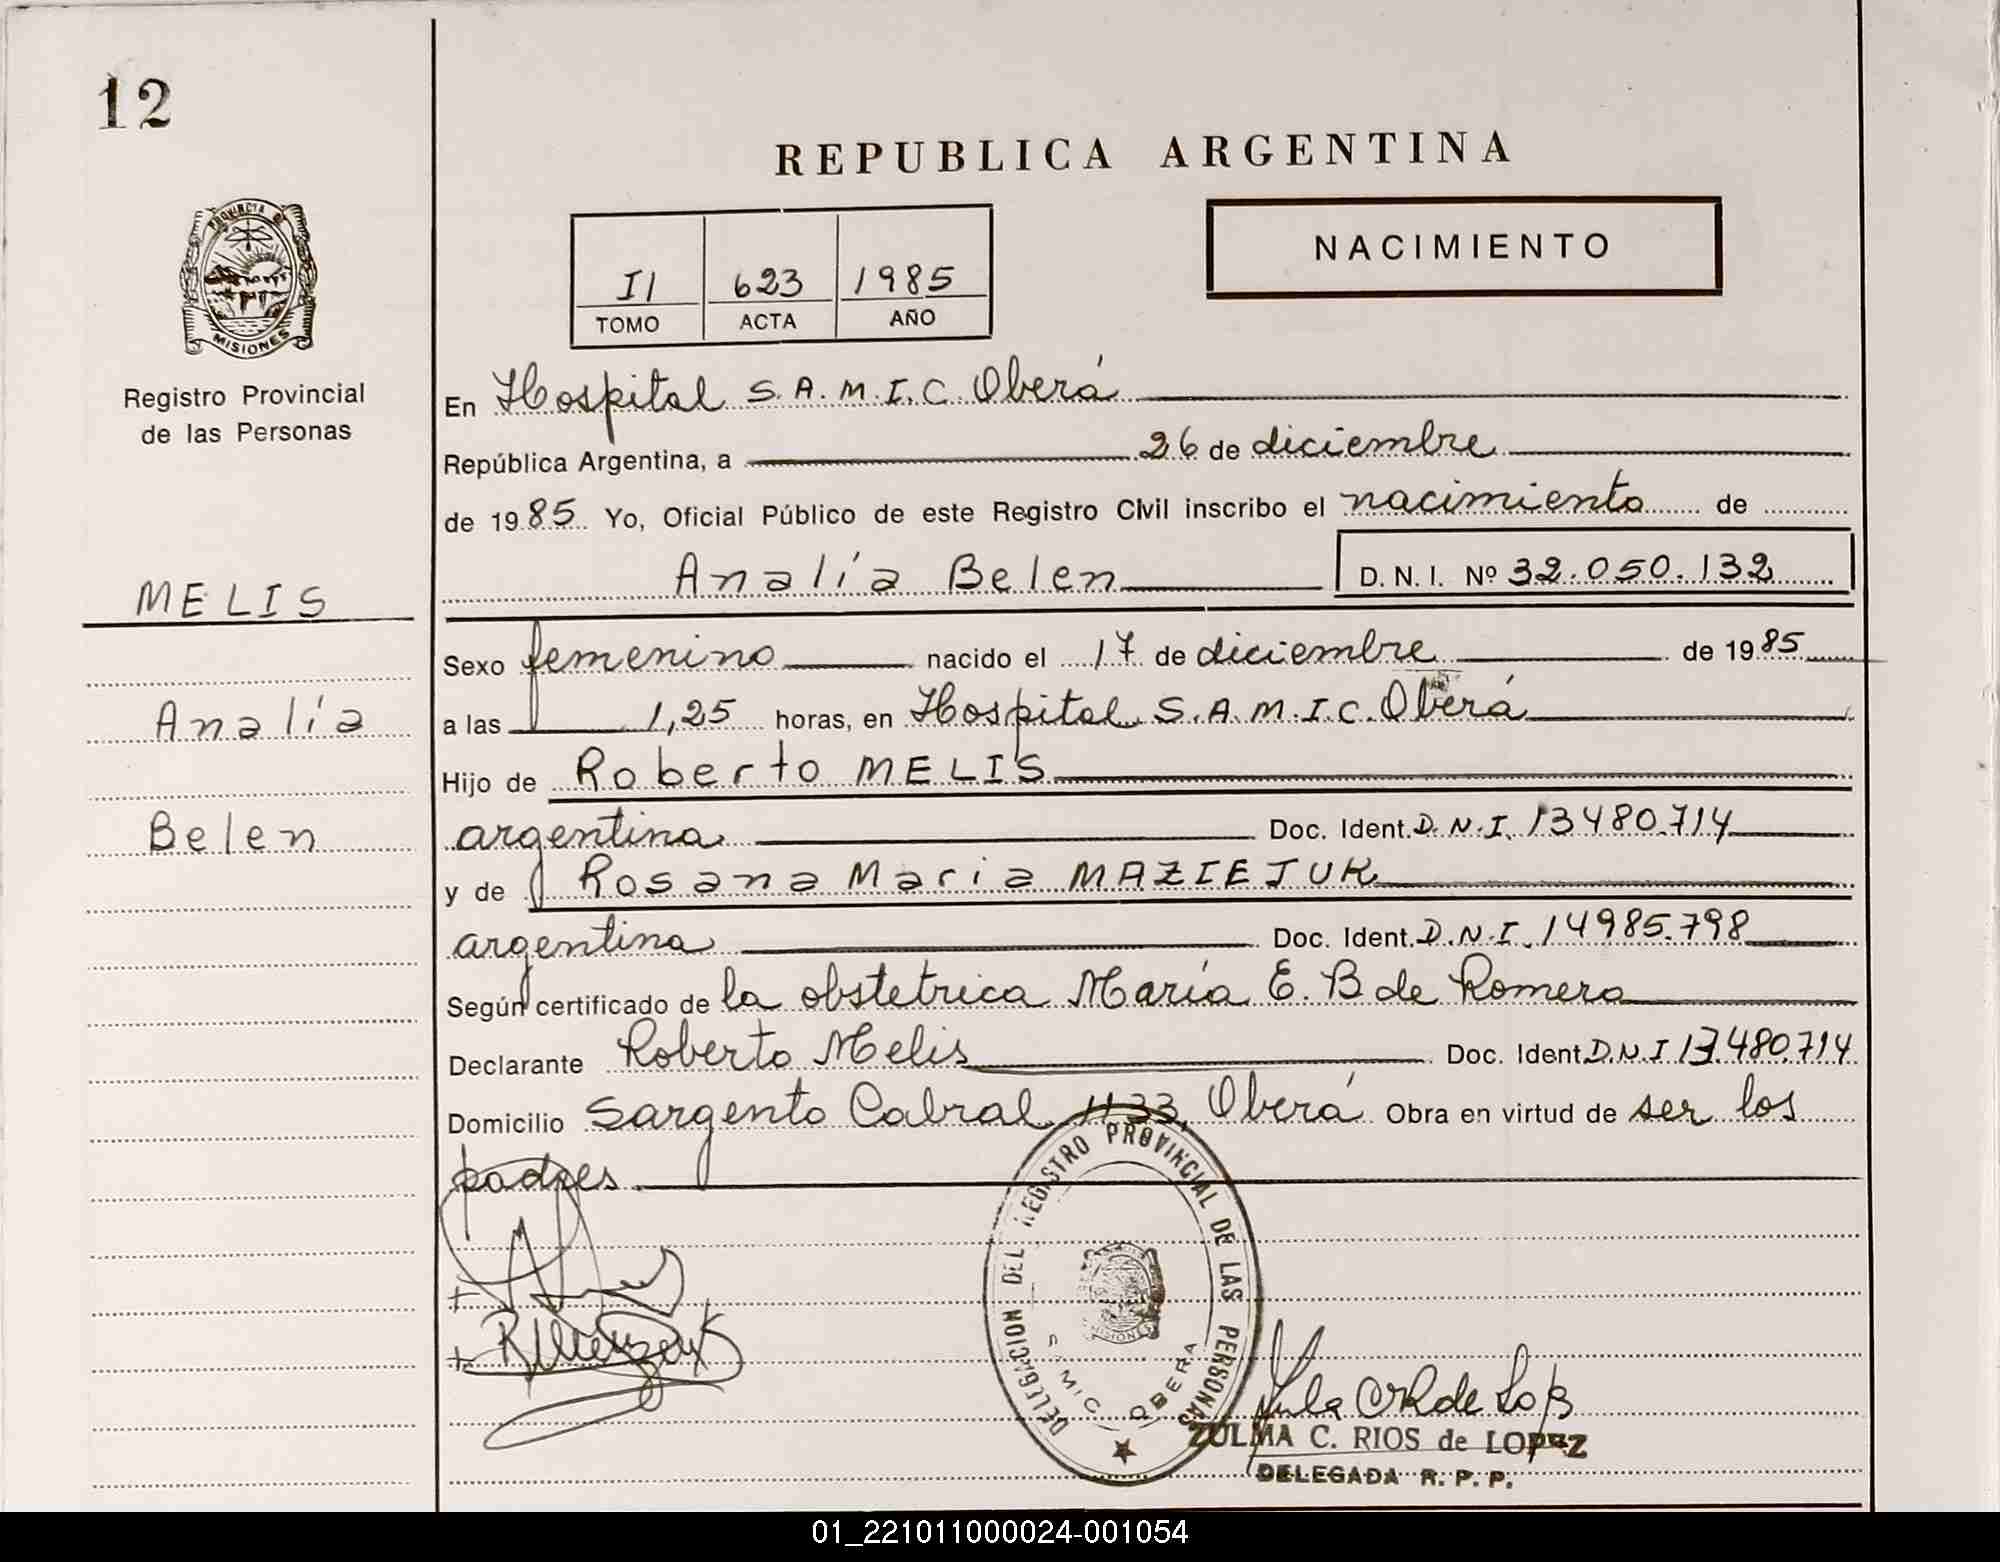 12
REPUBLICA ARGENTINA
PROVINCIA DE
MISIONES
II 623 1985
TOMO ACTA AÑO
NACIMIENTO
Registro Provincial
de las Personas
En Hospital S.A.M.I.C. Oberá
República Argentina, a 26 de diciembre
de 1985 Yo, Oficial Público de este Registro Civil inscribo el nacimiento de
Analía Belen D. N. I. Nº 32.050.132
MELIS
Analía
Belen
Sexo femenino nacido el 17 de diciembre de 1985
a las 1,25 horas, en Hospital S.A.M.I.C. Oberá
Hijo de Roberto MELIS
argentina Doc. Ident. D.N.I. 13480.714
y de Rosana Maria MAZIEJUK
argentina Doc. Ident. D.N.I. 14985.798
Según certificado de la obstetrica María E. B de Romero
Declarante Roberto Melis Doc. Ident. D.N.I 13.480.714
Domicilio Sargento Cabral 1133, Oberá Obra en virtud de ser los
padres
DELEGACION DEL REGISTRO PROVINCIAL DE LAS PERSONAS
SAMIC OBERA
MISIONES
ZULMA C. RIOS de LOPEZ
DELEGADA R. P. P.
01_221011000024-001054